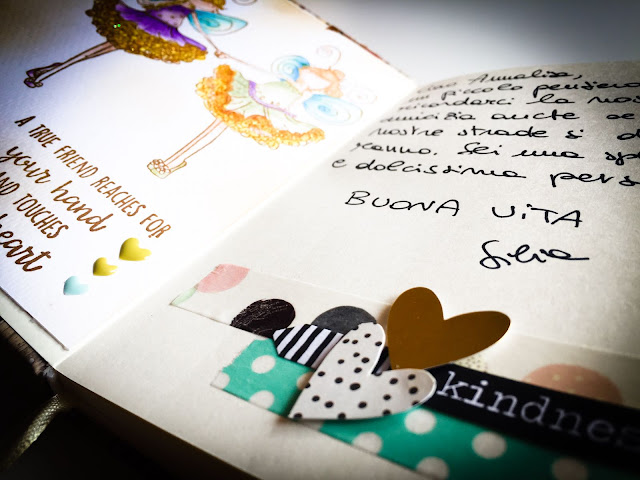 A TRUE FRIEND REACHES FOR
your hand
AND TOUCHES
heart
Annalisa,
un piccolo pensiero
ricordarci la nos
amicizia anche se
nostre strade si d
ranno. Sei una sp
e dolcissima pers
BUONA VITA
Silvia
kindnes